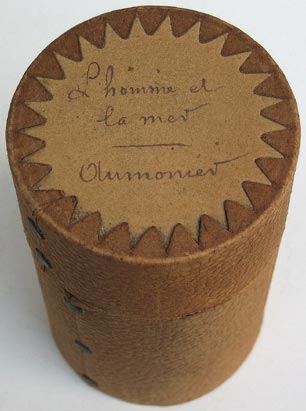 L'homme et
la mer
Aumonier